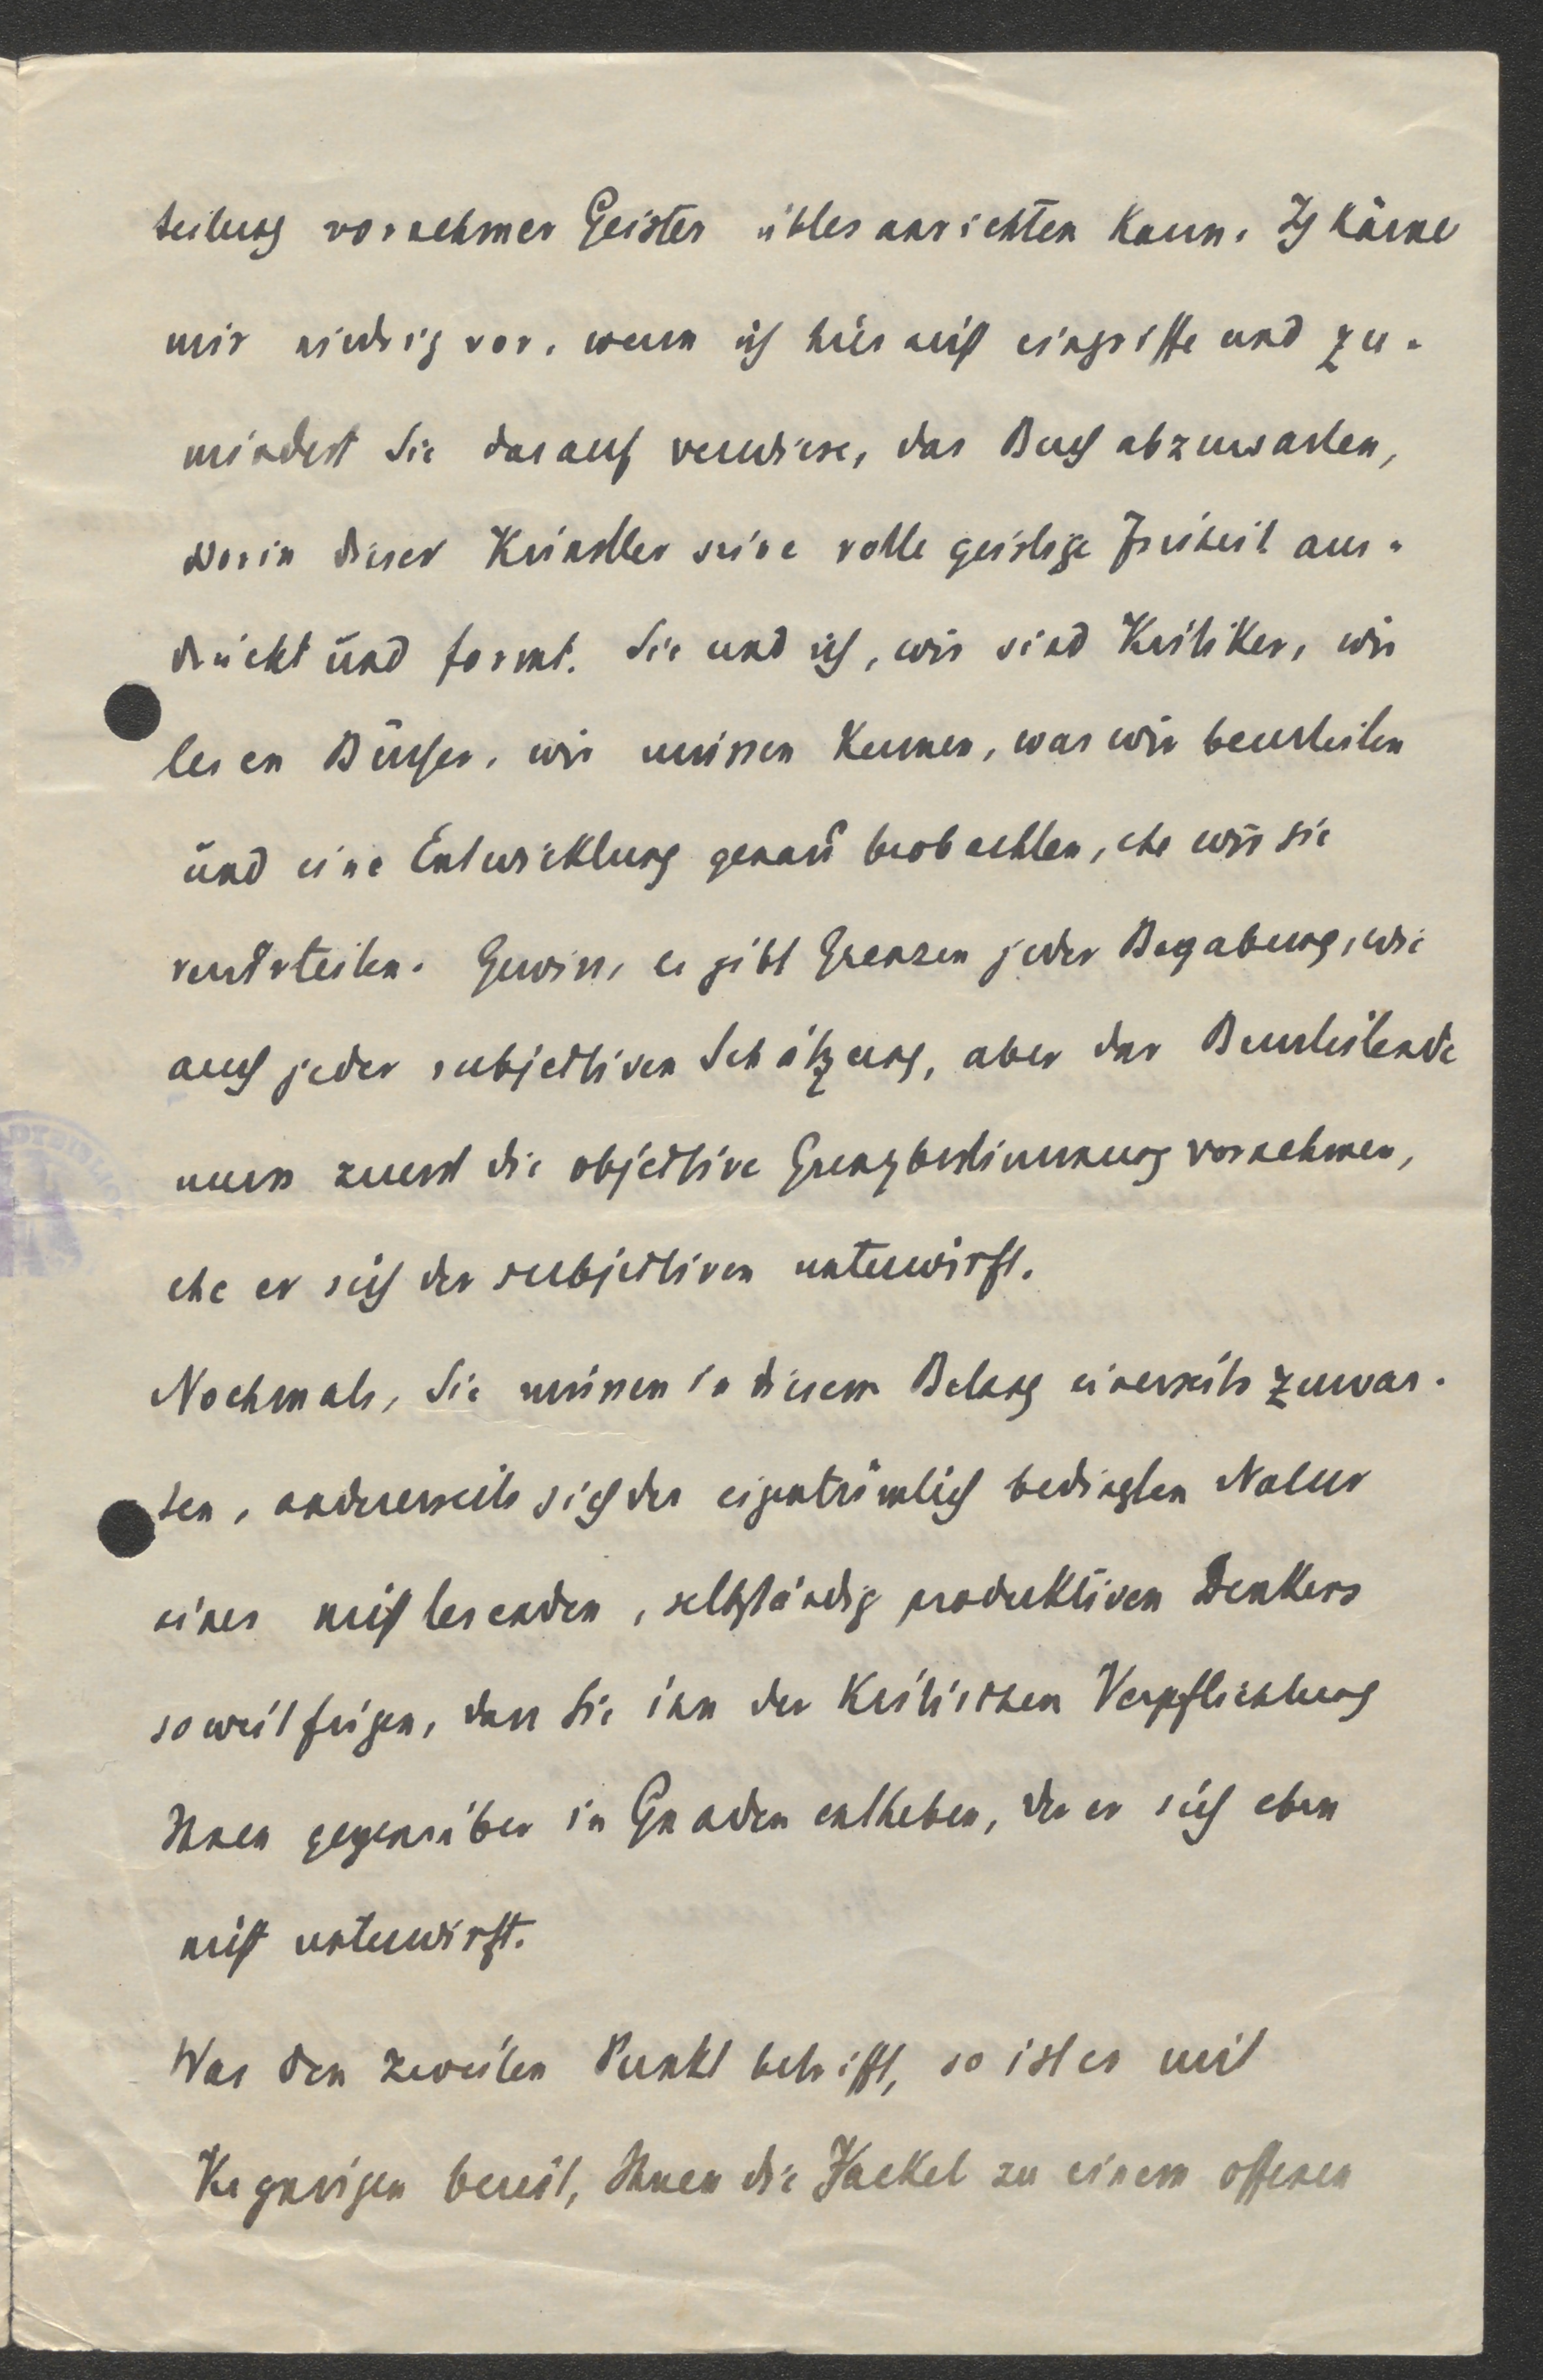 teilung vornehmer Geister übles anrichten kann. Ich käme
mir niedrig vor, wenn ich hier nicht eingriffe und zu-
mindest Sie darauf verwiese, das Buch abzuwarten,
worin dieser Künstler seine volle geistige Freiheit aus-
drückt und formt. Sie und ich, wir sind Kritiker, wir
lesen Bücher, wir müssen kennen, was wir beurteilen
und eine Entwicklung genau beobachten, ehe wir sie
verurteilen. Gewiss, es gibt Grenzen jeder Begabung, wie
auch jeder subjektiven Schätzung, aber der Beurteilende
muss zuerst die objektive Grenzbestimmung vornehmen,
ehe er sich der subjektiven unterwirft.
Nochmals, Sie müssen in diesem Belang einerseits zuwar-
ten, andererseits sich der eigentümlich bedingten Natur
eines nicht lesenden, selbständig produktiven Denkers
soweit fügen, dass Sie ihn der kritischen Verpflichtung
Ihnen gegenüber in Gnaden entheben, der er sich eben
nicht unterwirft.
Was den zweiten Punkt betrifft, so ist es mit
Vergnügen bereit, Ihnen die Fackel zu einem offenen